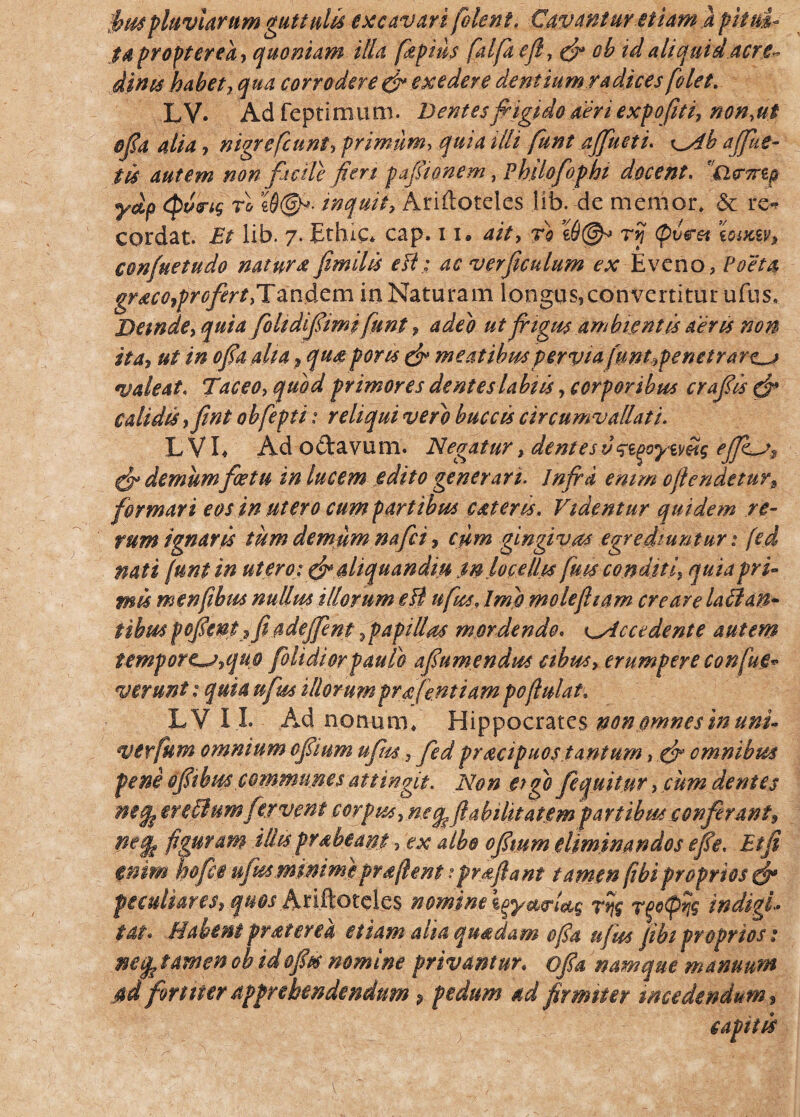 bus pluviarum guttulis excavari ſolent. Cavantur etiam à pitui-
ta proptereà, quoniam illa ſæpiùs ſalſa eſt, & ob id aliquid acre-
dinis habet, qua corrodere & exedere dentium radices ſolet.
LV. Ad ſeptimum. Dentes frigido aëri expoſiti, non, ut
oſſa alia, nigreſcunt, primùm, quia illi ſunt aſſueti. Ab aſſue-
tis autem non facilè fieri paſsionem, Philoſophi docent. Ὥσπερ
γὰρ φύσις τὸ ἔθ@. inquit, Ariſtoteles lib. de memor. & re-
cordat. Et lib. 7. Ethic. cap. 11. ait, τὸ ἔθ@ τῇ φύσει ἔοικεν,
conſuetudo naturæ ſimilis eſt; ac verſiculum ex Eveno, Poëta
græco, profert, Tandem in Naturam longus, convertitur uſus.
Deinde, quia ſolidiſsimi ſunt, adeò ut frigus ambientis aëris non
ita, ut in oſſa alia, quæ poris & meatibus pervia ſunt, penetrare
valeat. Taceo, quòd primores dentes labiis, corporibus craſsis &
calidis, ſint obſepti: reliqui verò buccis circumvallati.
LVI. Ad octavum. Negatur, dentes ὑστερογενεῖς eſſe,
& demùm fœtu in lucem edito generari. Infrà enim oſtendetur,
formari eos in utero cum partibus cæteris. Videntur quidem re-
rum ignaris tùm demùm naſci, cùm gingivas egrediuntur: ſed
nati ſunt in utero: & aliquandiu in locellis ſuis conditi, quia pri-
mis menſibus nullus illorum eſt uſus. Imò moleſtiam creare lactan-
tibus poſſent, ſi adeſſent, papillas mordendo. Accedente autem
tempore, quo ſolidior paulò aſſumendus cibus, erumpere conſue-
verunt: quia uſus illorum præſentiam poſtulat.
LVII. Ad nonum. Hippocrates non omnes in uni-
verſum omnium oſsium uſus, ſed præcipuos tantum, & omnibus
penè oſsibus communes attingit. Non ergò ſequitur, cùm dentes
neq; erectum ſervent corpus, neq; ſtabilitatem partibus conferant,
neq; figuram illis præbeant, ex albo oſsium eliminandos eſſe. Etſi
enim hoſce uſus minimè præſtent: præſtant tamen ſibi proprios &
peculiares, quos Ariſtoteles nomine ἐργασίας τῆς τροφῆς indigi-
tat. Habent prætereà etiam alia quædam oſſa uſus ſibi proprios:
neq; tamen ob id oſsis nomine privantur. Oſſa namque manuum
ad fortiter apprehendendum, pedum ad firmiter incedendum,
capitis